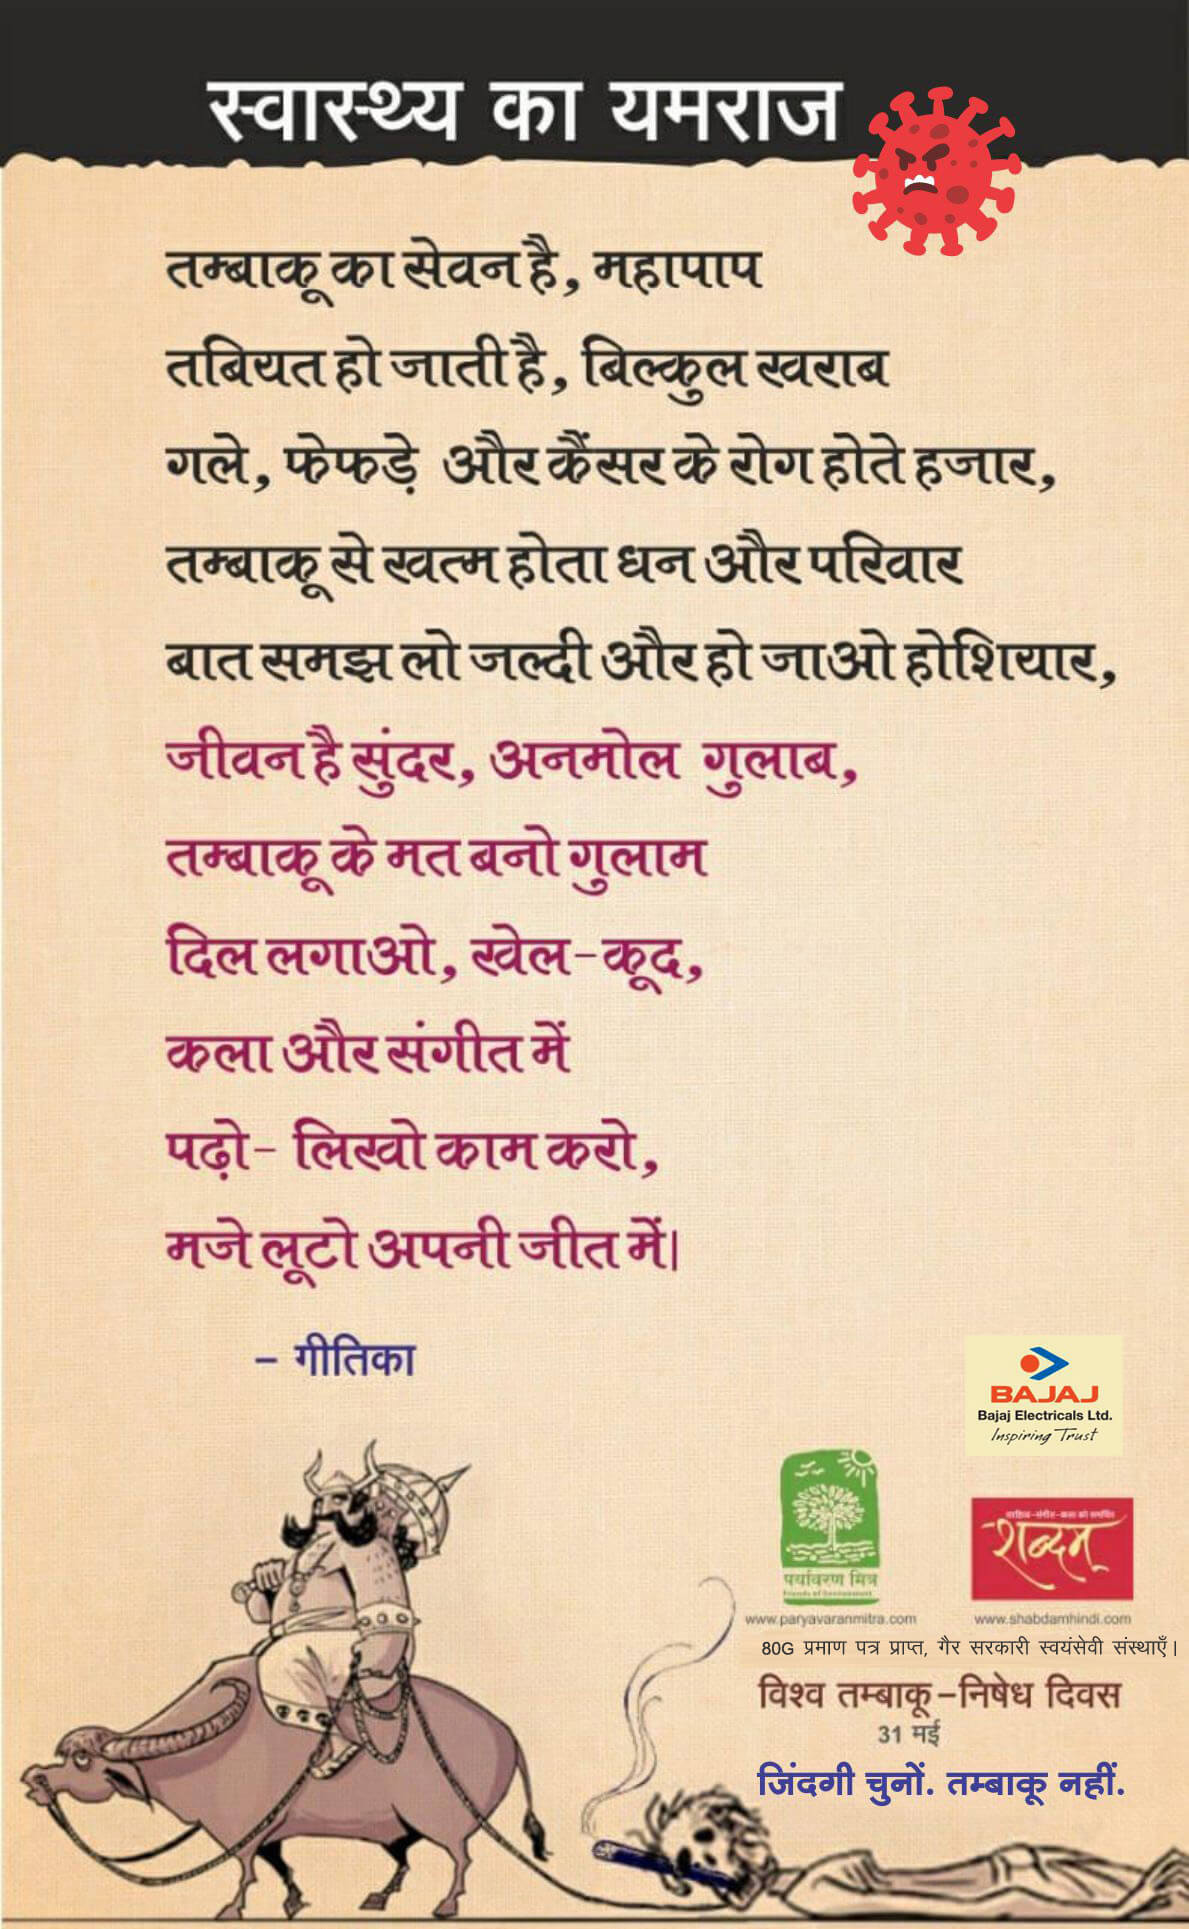 स्वास्थ्य का यमराज
तम्बाकू का सेवन है, महापाप
तबियत हो जाती है, बिल्कुल खराब
गले, फेफड़े और कैंसर के रोग होते हजार,
तम्बाकू से खत्म होता धन और परिवार
बात समझ लो जल्दी और हो जाओ होशियार,
जीवन है सुंदर, अनमोल गुलाब,
तम्बाकू के मत बनो गुलाम
दिल लगाओ, खेल-कूद,
कला और संगीत में
पढ़ो- लिखो काम करो,
मजे लूटो अपनी जीत में।
- गीतिका
BAJAJ
Bajaj Electricals Ltd.
Inspiring Trust
पर्यावरण मित्र
Friends of Environment
www.paryavaranmitra.com
साहित्य-संगीत-कला को समर्पित
शब्दम्
www.shabdamhindi.com
80G प्रमाण पत्र प्राप्त, गैर सरकारी स्वयंसेवी संस्थाएँ।
विश्व तम्बाकू-निषेध दिवस
31 मई
जिंदगी चुनों. तम्बाकू नहीं.